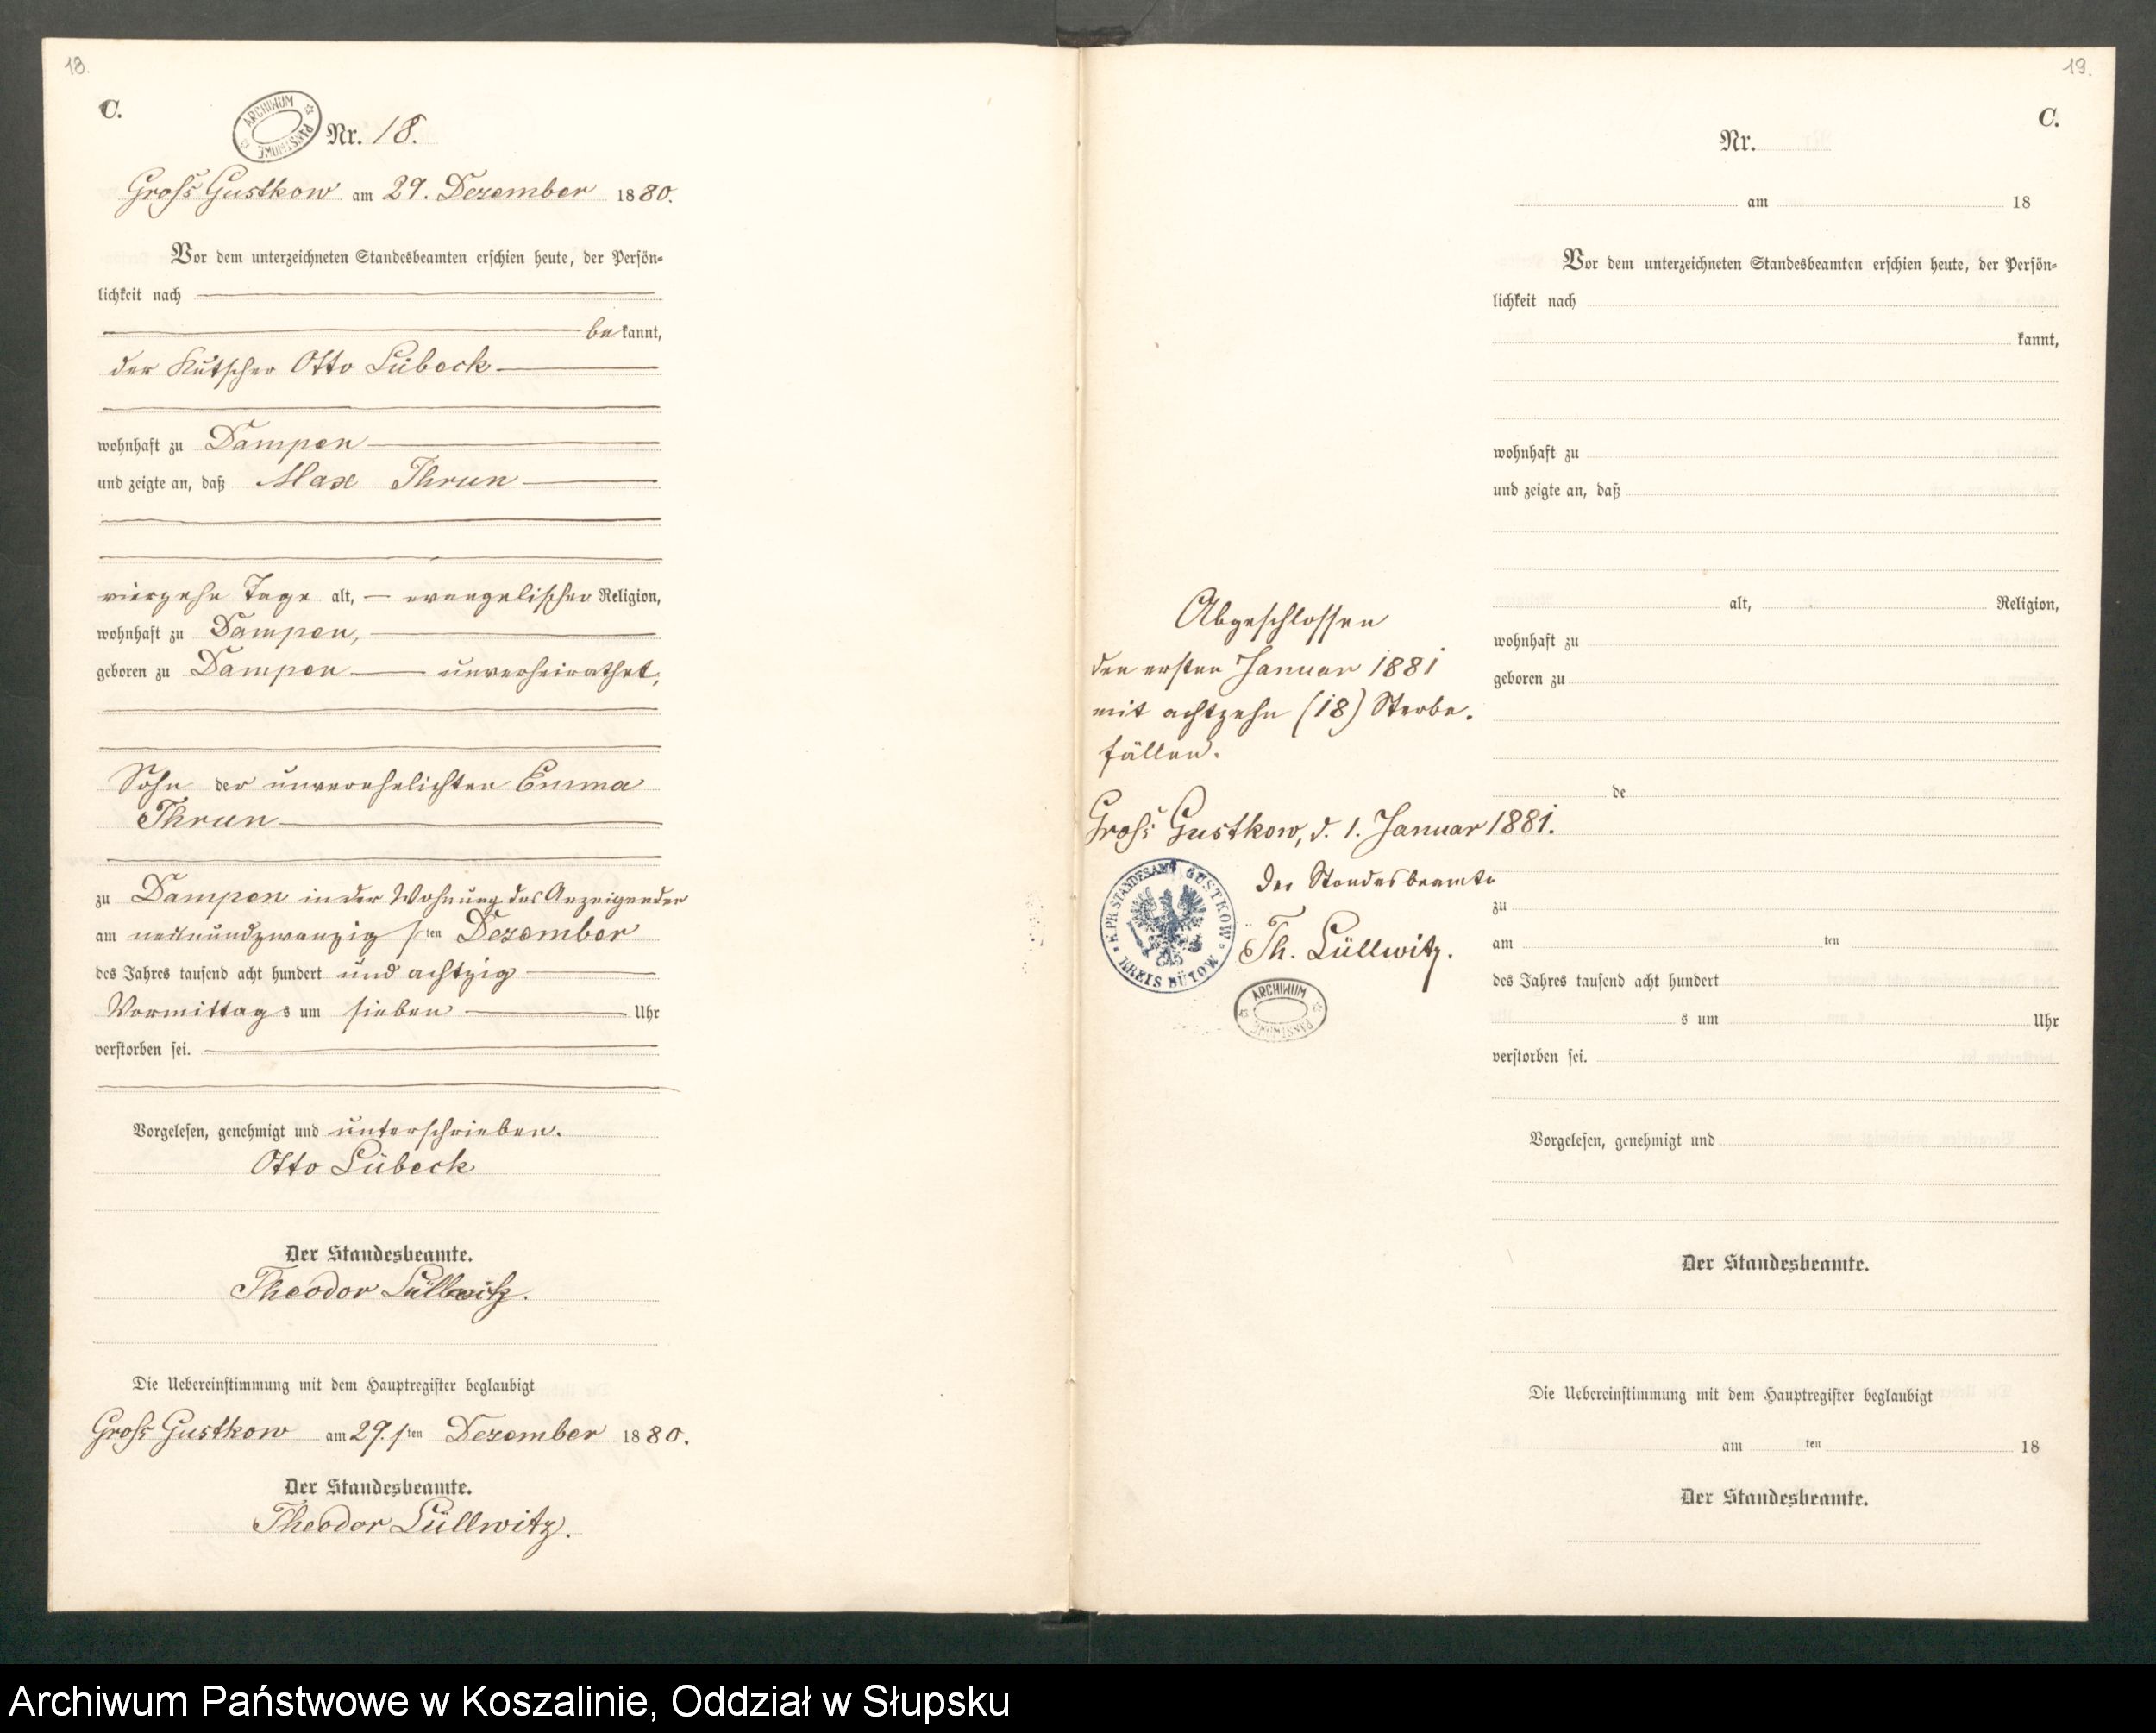 18.
C.
ARCHIWUM PAŃSTWOWE
Nr. 18.
Gross Gustkow am 29. Dezember 1880.
Vor dem unterzeichneten Standesbeamten erschien heute, der Persön-
lichkeit nach
be kannt,
der Kutscher Otto Lübeck
wohnhaft zu Dampen
und zeigte an, daß Max Thrun
vierzehn Tage alt, evangelischer Religion,
wohnhaft zu Dampen,
geboren zu Dampen unverheirathet,
Sohn der unverehelichten Emma
Thrun
zu Dampen in der Wohnung des Anzeigenden
am neunundzwanzigsten Dezember
des Jahres tausend acht hundert und achtzig
Vormittags um sieben Uhr
verstorben sei.
Vorgelesen, genehmigt und unterschrieben.
Otto Lübeck
Der Standesbeamte.
Theodor Lüllwitz.
Die Uebereinstimmung mit dem Hauptregister beglaubigt
Gross Gustkow am 29. ten Dezember 1880.
Der Standesbeamte.
Theodor Lüllwitz.
19.
C.
Nr.
am 18
Vor dem unterzeichneten Standesbeamten erschien heute, der Persön-
lichkeit nach
kannt,
wohnhaft zu
und zeigte an, daß
alt, Religion,
wohnhaft zu
geboren zu
de
zu
am ten
des Jahres tausend acht hundert
s um Uhr
verstorben sei.
Vorgelesen, genehmigt und
Der Standesbeamte.
Die Uebereinstimmung mit dem Hauptregister beglaubigt
am ten 18
Der Standesbeamte.
Abgeschlossen
den ersten Januar 1881
mit achtzehn (18) Sterbe-
fällen.
Gross Gustkow, d. 1. Januar 1881.
Der Standesbeamte
Th. Lüllwitz.
K. PR. STANDESAMT GUSTKOW
KREIS BÜTOW
ARCHIWUM PAŃSTWOWE
Archiwum Państwowe w Koszalinie, Oddział w Słupsku